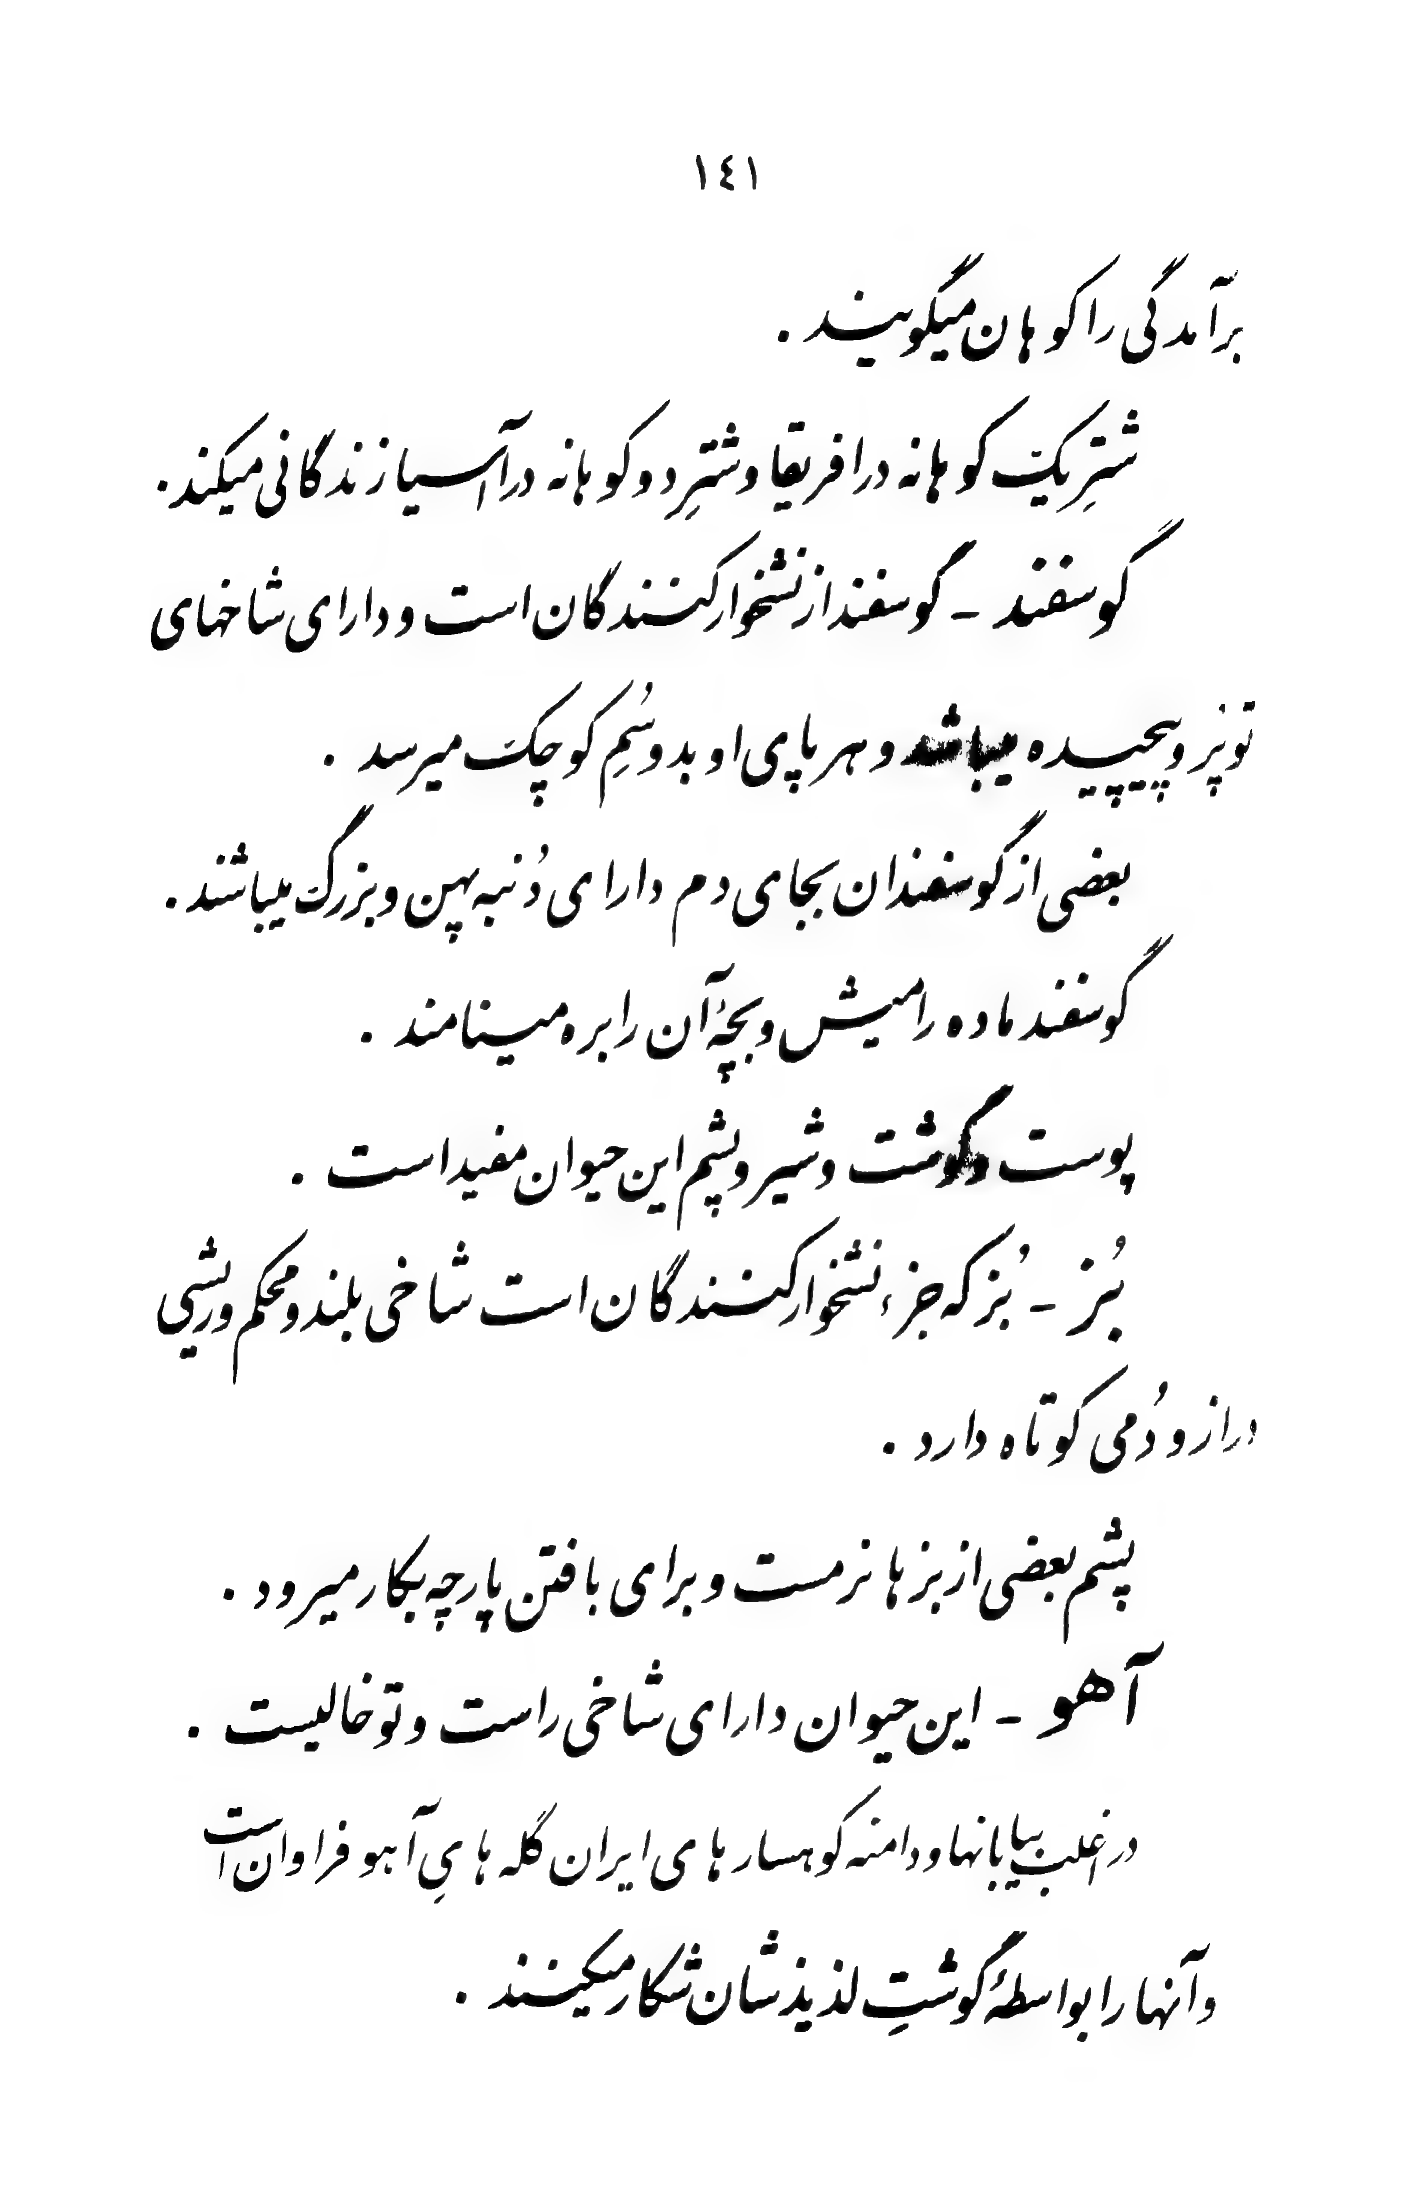 ١٤١
برآمدگی را کوهان میگویند .
شترِ یک کوهانه در افریقا و شترِ دو کوهانه در آسیا زندگانی میکند .
گوسفند ـ گوسفند از نشخوار کنندگان است و دارای شاخهای
توپر و پیچیده میباشد و هر پای او بدو سُمِ کوچک میرسد .
بعضی از گوسفندان بجای دم دارای دُنبه پهن و بزرگ میباشند .
گوسفند ماده را میش و بچهٔ آن را بره مینامند .
پوست و گوشت و شیر و پشم این حیوان مفید است .
بُز ـ بُز که جزء نشخوار کنندگان است شاخی بلند و محکم و ریشی
دراز و دُمی کوتاه دارد .
پشم بعضی از بزها نرمست و برای بافتن پارچه بکار میرود .
آهو ـ این حیوان دارای شاخی راست و تو خالیست .
در اغلب بیابانها و دامنه کوهسارهای ایران گله هایِ آهو فراوان است
و آنها را بواسطهٔ گوشتِ لذیذشان شکار میکنند .